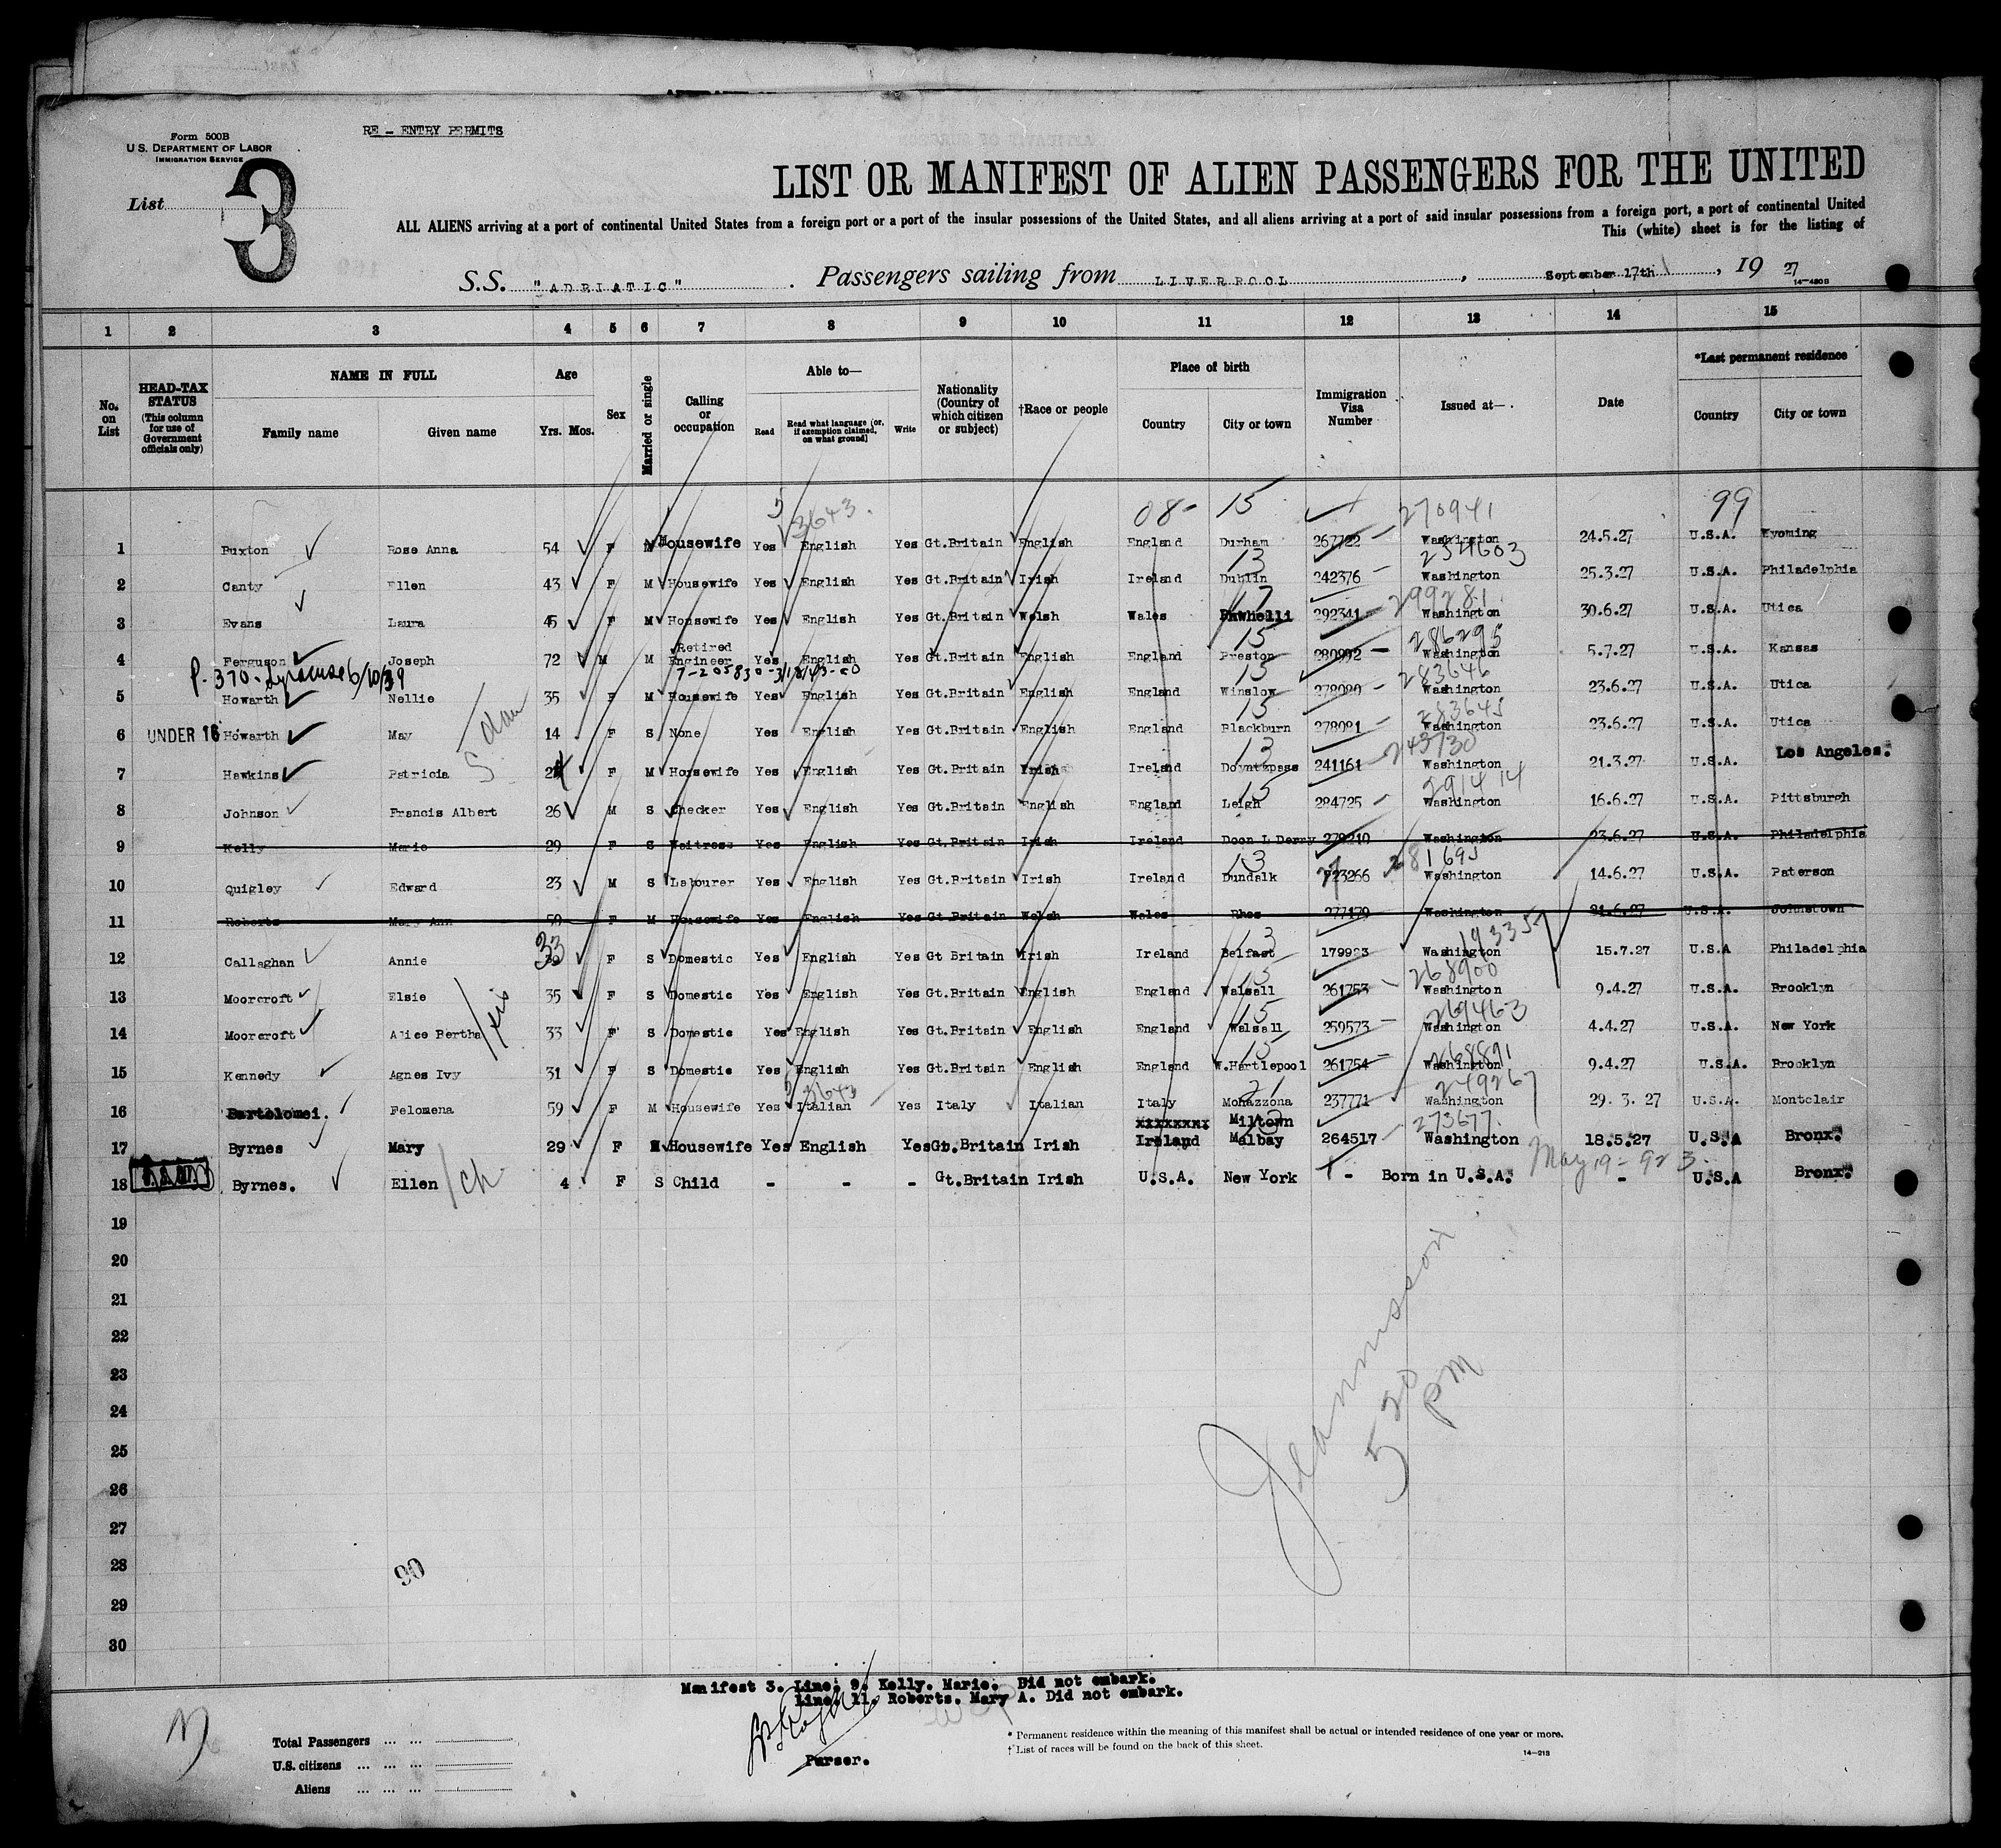 Form 500B
U. S. DEPARTMENT OF LABOR
IMMIGRATION SERVICE
RE - ENTRY PERMITS
List 3
LIST OR MANIFEST OF ALIEN PASSENGERS FOR THE UNITED
ALL ALIENS arriving at a port of continental United States from a foreign port or a port of the insular possessions of the United States, and all aliens arriving at a port of said insular possessions from a foreign port, a port of continental United
This (white) sheet is for the listing of
S.S. "ADRIATIC" . Passengers sailing from LIVERPOOL , September 17th , 19 27
14-420B
1 2 3 4 5 6 7 8 9 10 11 12 13 14 15
No. on List
HEAD-TAX STATUS (This column for use of Government officials only)
NAME IN FULL Family name Given name
Age Yrs. Mos.
Sex
Married or single
Calling or occupation
Able to— Read Read what language (or, if exemption claimed, on what ground) Write
Nationality (Country of which citizen or subject)
†Race or people
Place of birth Country City or town
Immigration Visa Number
Issued at—
Date
*Last permanent residence Country City or town
5 3643. 08- 15 270941 99
1 Buxton Rose Anna 54 F M Housewife Yes English Yes Gt.Britain English England Durham 267722 Washington 24.5.27 U.S.A. Wyoming
13
2 Canty Ellen 43 F M Housewife Yes English Yes Gt.Britain Irish Ireland Dublin 242376 Washington 25.3.27 U.S.A. Philadelphia
17 299281
3 Evans Laura 45 F M Housewife Yes English Yes Gt.Britain Welsh Wales Pwhelli 292341 Washington 30.6.27 U.S.A. Utica
15 286295
4 Ferguson Joseph 72 M M Retired Engineer Yes English Yes Gt.Britain English England Preston 280992 Washington 5.7.27 U.S.A. Kansas
15 283646
5 Howarth Nellie 35 F M Housewife Yes English Yes Gt.Britain English England Winslow 278080 Washington 23.6.27 U.S.A. Utica
15 283645
6 UNDER 16 Howarth May 14 F S None Yes English Yes Gt.Britain English England Blackburn 278081 Washington 23.6.27 U.S.A. Utica
13 243730
7 Hawkins Patricia F M Housewife Yes English Yes Gt.Britain Irish Ireland 241161 Washington 21.3.27 U.S.A. Los Angeles.
15 291414
8 Johnson Francis Albert 26 M S Checker Yes English Yes Gt.Britain English England Leigh 284725 Washington 16.6.27 U.S.A. Pittsburgh
9 Kelly Marie 29 F S Waitress Yes English Yes Gt.Britain Irish Ireland Doon L Derry 279210 Washington 23.6.27 U.S.A. Philadelphia
13 281695
10 Quigley Edward 23 M S Labourer Yes English Yes Gt.Britain Irish Ireland Dundalk 223266 Washington 14.6.27 U.S.A. Paterson
11 Roberts Mary Ann 59 F M Housewife Yes English Yes Gt.Britain Welsh Wales Rhos 277179 Washington 21.6.27 U.S.A. Johnstown
33 13
12 Callaghan Annie F S Domestic Yes English Yes Gt Britain Irish Ireland Belfast 179923 Washington 15.7.27 U.S.A Philadelphia
15 268900
13 Moorcroft Elsie 35 F S Domestic Yes English Yes Gt.Britain English England Walsall 261753 Washington 9.4.27 U.S.A. Brooklyn
15 269463
14 Moorcroft Alice Bertha 33 F S Domestic Yes English Yes Gt.Britain English England Walsall 259573 Washington 4.4.27 U.S.A. New York
15 268891
15 Kennedy Agnes Ivy 31 F S Domestic Yes English Yes Gt.Britain English England W.Hartlepool 261754 Washington 9.4.27 U.S.A. Brooklyn
21 249267
16 Bartolomei. Felomena 59 F M Housewife Yes Italian Yes Italy Italian Italy Monazzona 237771 Washington 29.3.27 U.S.A. Montclair
273677
17 Byrnes Mary 29 F M Housewife Yes English Yes Gt.Britain Irish Ireland Miltown Malbay 264517 Washington 18.5.27 U.S.A Bronx.
May 19-923
18 Byrnes. Ellen /ch 4 F S Child - - - Gt.Britain Irish U.S.A. New York - Born in U.S.A. - U.S.A Bronx.
19
20
21
22
23
24
25
26
27
28
29
30
5 20 PM
90
Manifest 3. Line: 9. Kelly. Marie. Did not embark.
Line: 11. Roberts. Mary A. Did not embark.
Purser.
Total Passengers
U.S. citizens
Aliens
* Permanent residence within the meaning of this manifest shall be actual or intended residence of one year or more.
† List of races will be found on the back of this sheet.
14-213